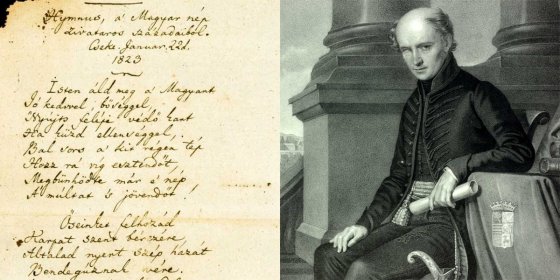 Hymnus, a' Magyar nép
zivataros századaiból.
Cseke. Januar. 22d.
1823
Isten áldd meg a' Magyart
Jó kedvvel, bőséggel,
Nyújts feléje védő kart
Ha küzd ellenséggel,
Bal sors a' kit régen tép
Hozz rá víg esztendőt,
Megbűnhödte már e' nép
A' múltat 's jövendőt!
Őseinket felhozád
Kárpát szent bérczére
Általad nyert szép hazát
Bendegúznak vére.